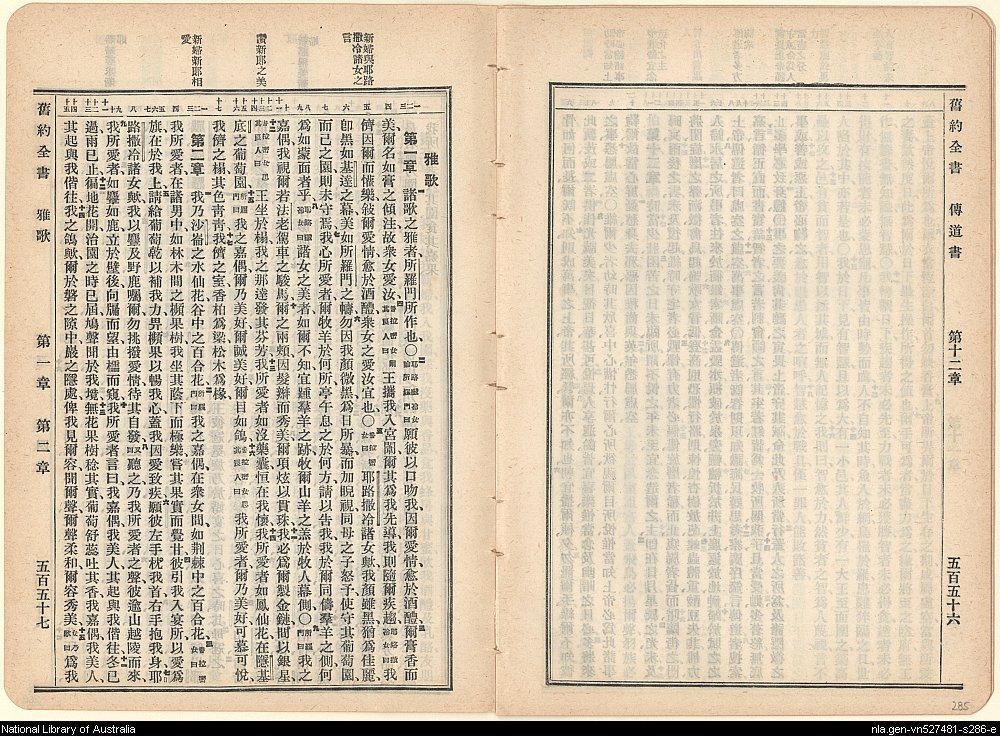 舊約全書　傳道書　第十二章　五百五十六
新婦與耶路
撒冷諸女之
言
新婦新郎相
愛
雅歌
第一章　諸歌之雅者所羅門所作也〇願彼以口吻我因爾愛情愈於酒醴爾膏香而
美爾名如膏之傾注故衆女愛汝王攜我入宮闈爾其爲我先導我則隨爾疾趨我
儕因爾而懽樂彼爾愛情愈於酒醴衆女之愛汝宜也〇耶路撒冷諸女歟我顏雖黑猶爲佳麗
卽黑如基達之幕美如所羅門之幬勿因我顏微黑爲日所暴而加睨視同母之子怒予使守其葡萄園
而己之園則未守焉我心所愛者爾牧羊於何所亭午息之於何方請以告我我於爾同儔羣羊之側何
爲如蒙面者乎諸女之美者如爾不知宜踵羣羊之跡牧爾山羊之羔於牧人幕側〇我之
嘉偶我視爾若法老駕車之駿馬爾之兩頰因髮辮而秀美爾項炫以貫珠我必爲爾製金鏈間以銀星
王坐於榻我之那達發其芬芳我所愛者如沒藥囊恒在我懷我所愛者如鳳仙花在隱基
底之葡萄園我之嘉偶爾乃美好爾誠美好爾目如鴿我所愛者爾乃美好可慕可悅
我儕之榻其色靑靑我儕之室香柏爲梁松木爲椽
第二章　我乃沙崙之水仙花谷中之百合花我之嘉偶在衆女間如荆棘中之百合花
我所愛者在諸男中如林木間之蘋果樹我坐其蔭下而極樂嘗其果實而覺甘彼引我入宴所以愛爲
旗在於我上請給葡萄乾以補我力畀蘋果以暢我心蓋我因愛致疾願彼左手枕我首右手抱我身耶
路撒冷諸女歟我以麞及野鹿囑爾勿挑撥愛情待其自發聽之乃我所愛者之聲彼逾山越陵而來
我所愛者如麞如鹿立於壁後向牖而望由櫺而窺我所愛者言曰我嘉偶我美人其起與我偕往冬已
過雨已止徧地花開治園之時已屆鳩聲聞於我境無花果樹稔其實葡萄舒蕊吐其香我嘉偶我美人
其起與我偕往我之鴿歟爾於磐之隙中巖之隱處俾我見爾容聞爾聲爾聲柔和爾容秀美爲我
舊約全書　雅歌　第一章　第二章　五百五十七
285
National Library of Australia
nla.gen-vn527481-s286-e